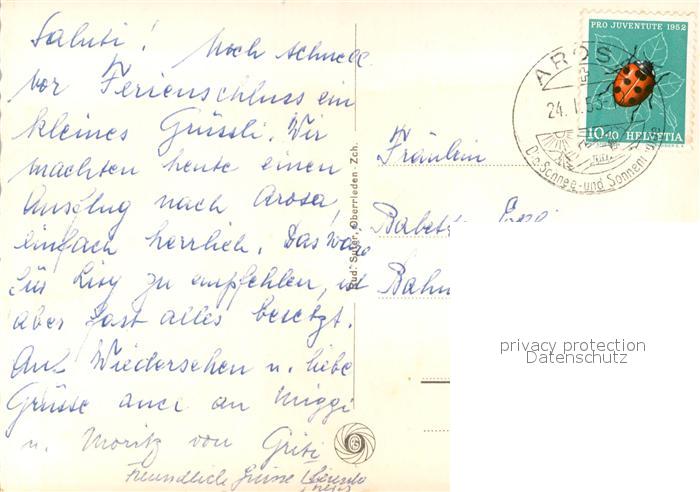 Saluti! Noch schnell
vor Ferienschluss ein
kleines Grüssli. Wir
machten heute einen
Ausflug nach Arosa,
einfach herrlich. Das wäre
für Lisy zu empfehlen, ist
aber fast alles besetzt.
Auf Wiedersehen u. liebe
Grüsse auch an Miggi
u. Moritz von Griti
Freundliche Grüsse
Rud. Suter, Oberrieden-Zch.
PRO JUVENTUTE 1952
10+10 HELVETIA
AROS
24. I. 53
Die Schnee- und Sonnen
Fräulein
Bahn
privacy protection
Datenschutz